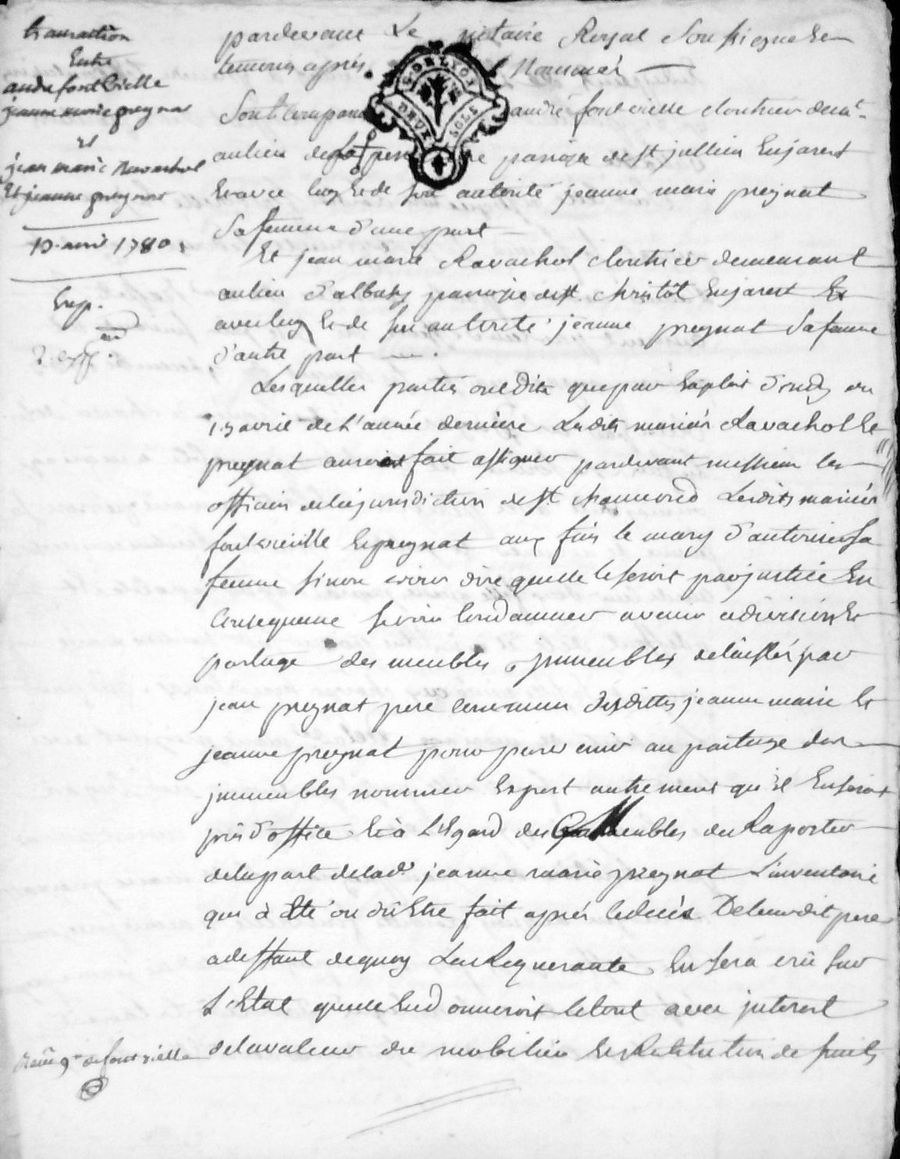 transaction
Entre
andre fontvielle
jeanne marie preynat
et
jean marie Ravachol
Et jeanne preynat
13 avril 1780
Exp.
pardevant Le notaire Royal Soussigné Et
temoins après Nommés
G. DE LYON
DEUX SOLS
Sont comparus andré fontvielle cloutier demt
au lieu de paroisse de st jullien En jarest
Et avec luy Et de Son autorité jeanne marie preynat
Sa femme d'une part
Et jean marie Ravachol cloutier demeurant
au lieu d'albuzy paroisse de st christôt En jarest Et
avec luy Et de Son autorité jeanne preynat Sa femme
d'autre part
Lesquelles parties ont dit que par Exploit d'
13 avril de l'année dernière Lesdits mariés Ravachol Et
preynat auroient fait assigner pardevant messieurs les
officiers de la jurisdiction de st chaumond Lesdits mariés
fontvieille Et preynat aux fins le mary d'autoriser Sa
femme Sinon voir dire quelle le Seroit par justice En
Consequence Se voir Condamner a venir a division Et
partage des meubles, jmmeubles délaissés par
jean preynat pere commun desdittes jeanne marie Et
jeanne preynat pour parvenir au partage des
jmmeubles nommer Expert autrement qu'il En Seroit
pris d'office Et à L'Egard des meubles de Raporter
de la part de lade jeanne marie preynat L'inventaire
qui à Eté ou dû Etre fait après le décès De leur dit pere
a deffaut de quoy La Requerante En Sera crüe Sur
L'Etat quelle En donneroit le tout avec jnterest
de la valeur du mobilier Et Restitution de fruits
de fontvielle